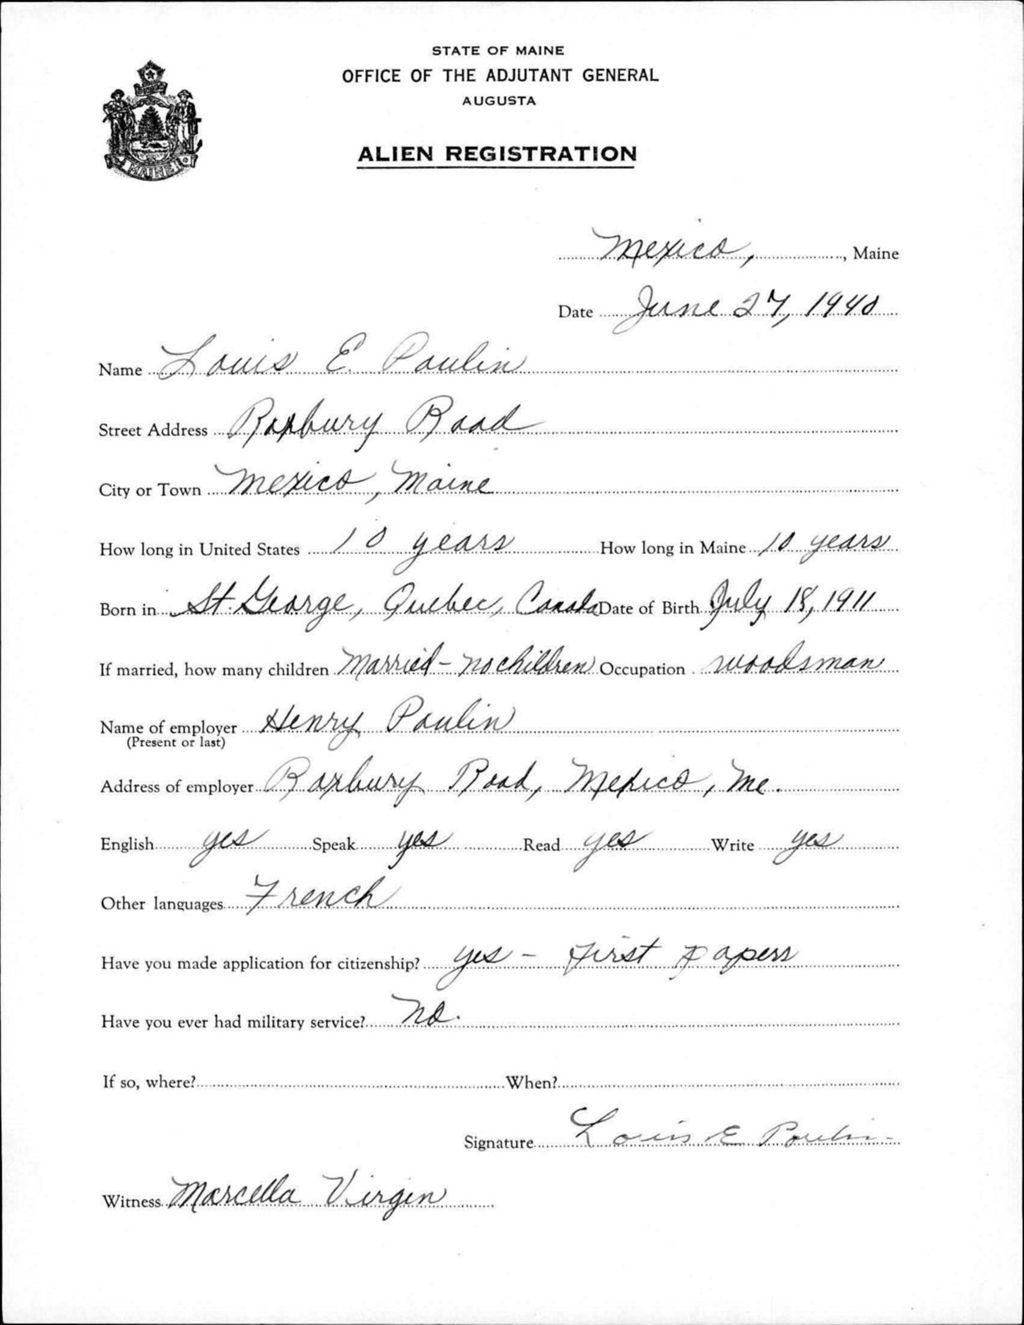 STATE OF MAINE
OFFICE OF THE ADJUTANT GENERAL
AUGUSTA
ALIEN REGISTRATION
MAINE
Mexico, , Maine
Date June 27, 1940
Name Louis E. Poulin
Street Address Roxbury Road
City or Town Mexico, Maine
How long in United States 10 years How long in Maine 10 years
Born in St. George, Quebec, Canada Date of Birth July 18, 1911
If married, how many children Married - no children Occupation woodsman
Name of employer Henry Poulin
(Present or last)
Address of employer Roxbury Road, Mexico, Me.
English yes Speak yes Read yes Write yes
Other languages French
Have you made application for citizenship? yes - First Papers
Have you ever had military service? No.
If so, where? When?
Signature Louis E Poulin
Witness Marcella Virgin